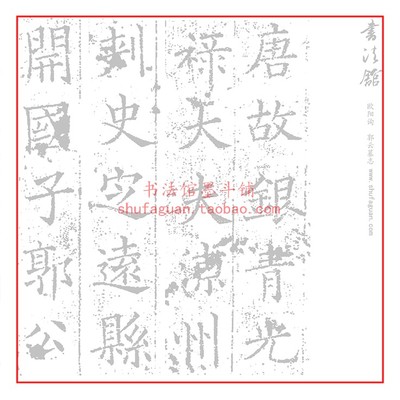 書法館
欧阳询 郭云墓志 www.shufaguan.com
唐故銀青光
祿大夫凉州
刺史定遠縣
開國子郭公
书法馆墨斗铺
shufaguan.taobao.com